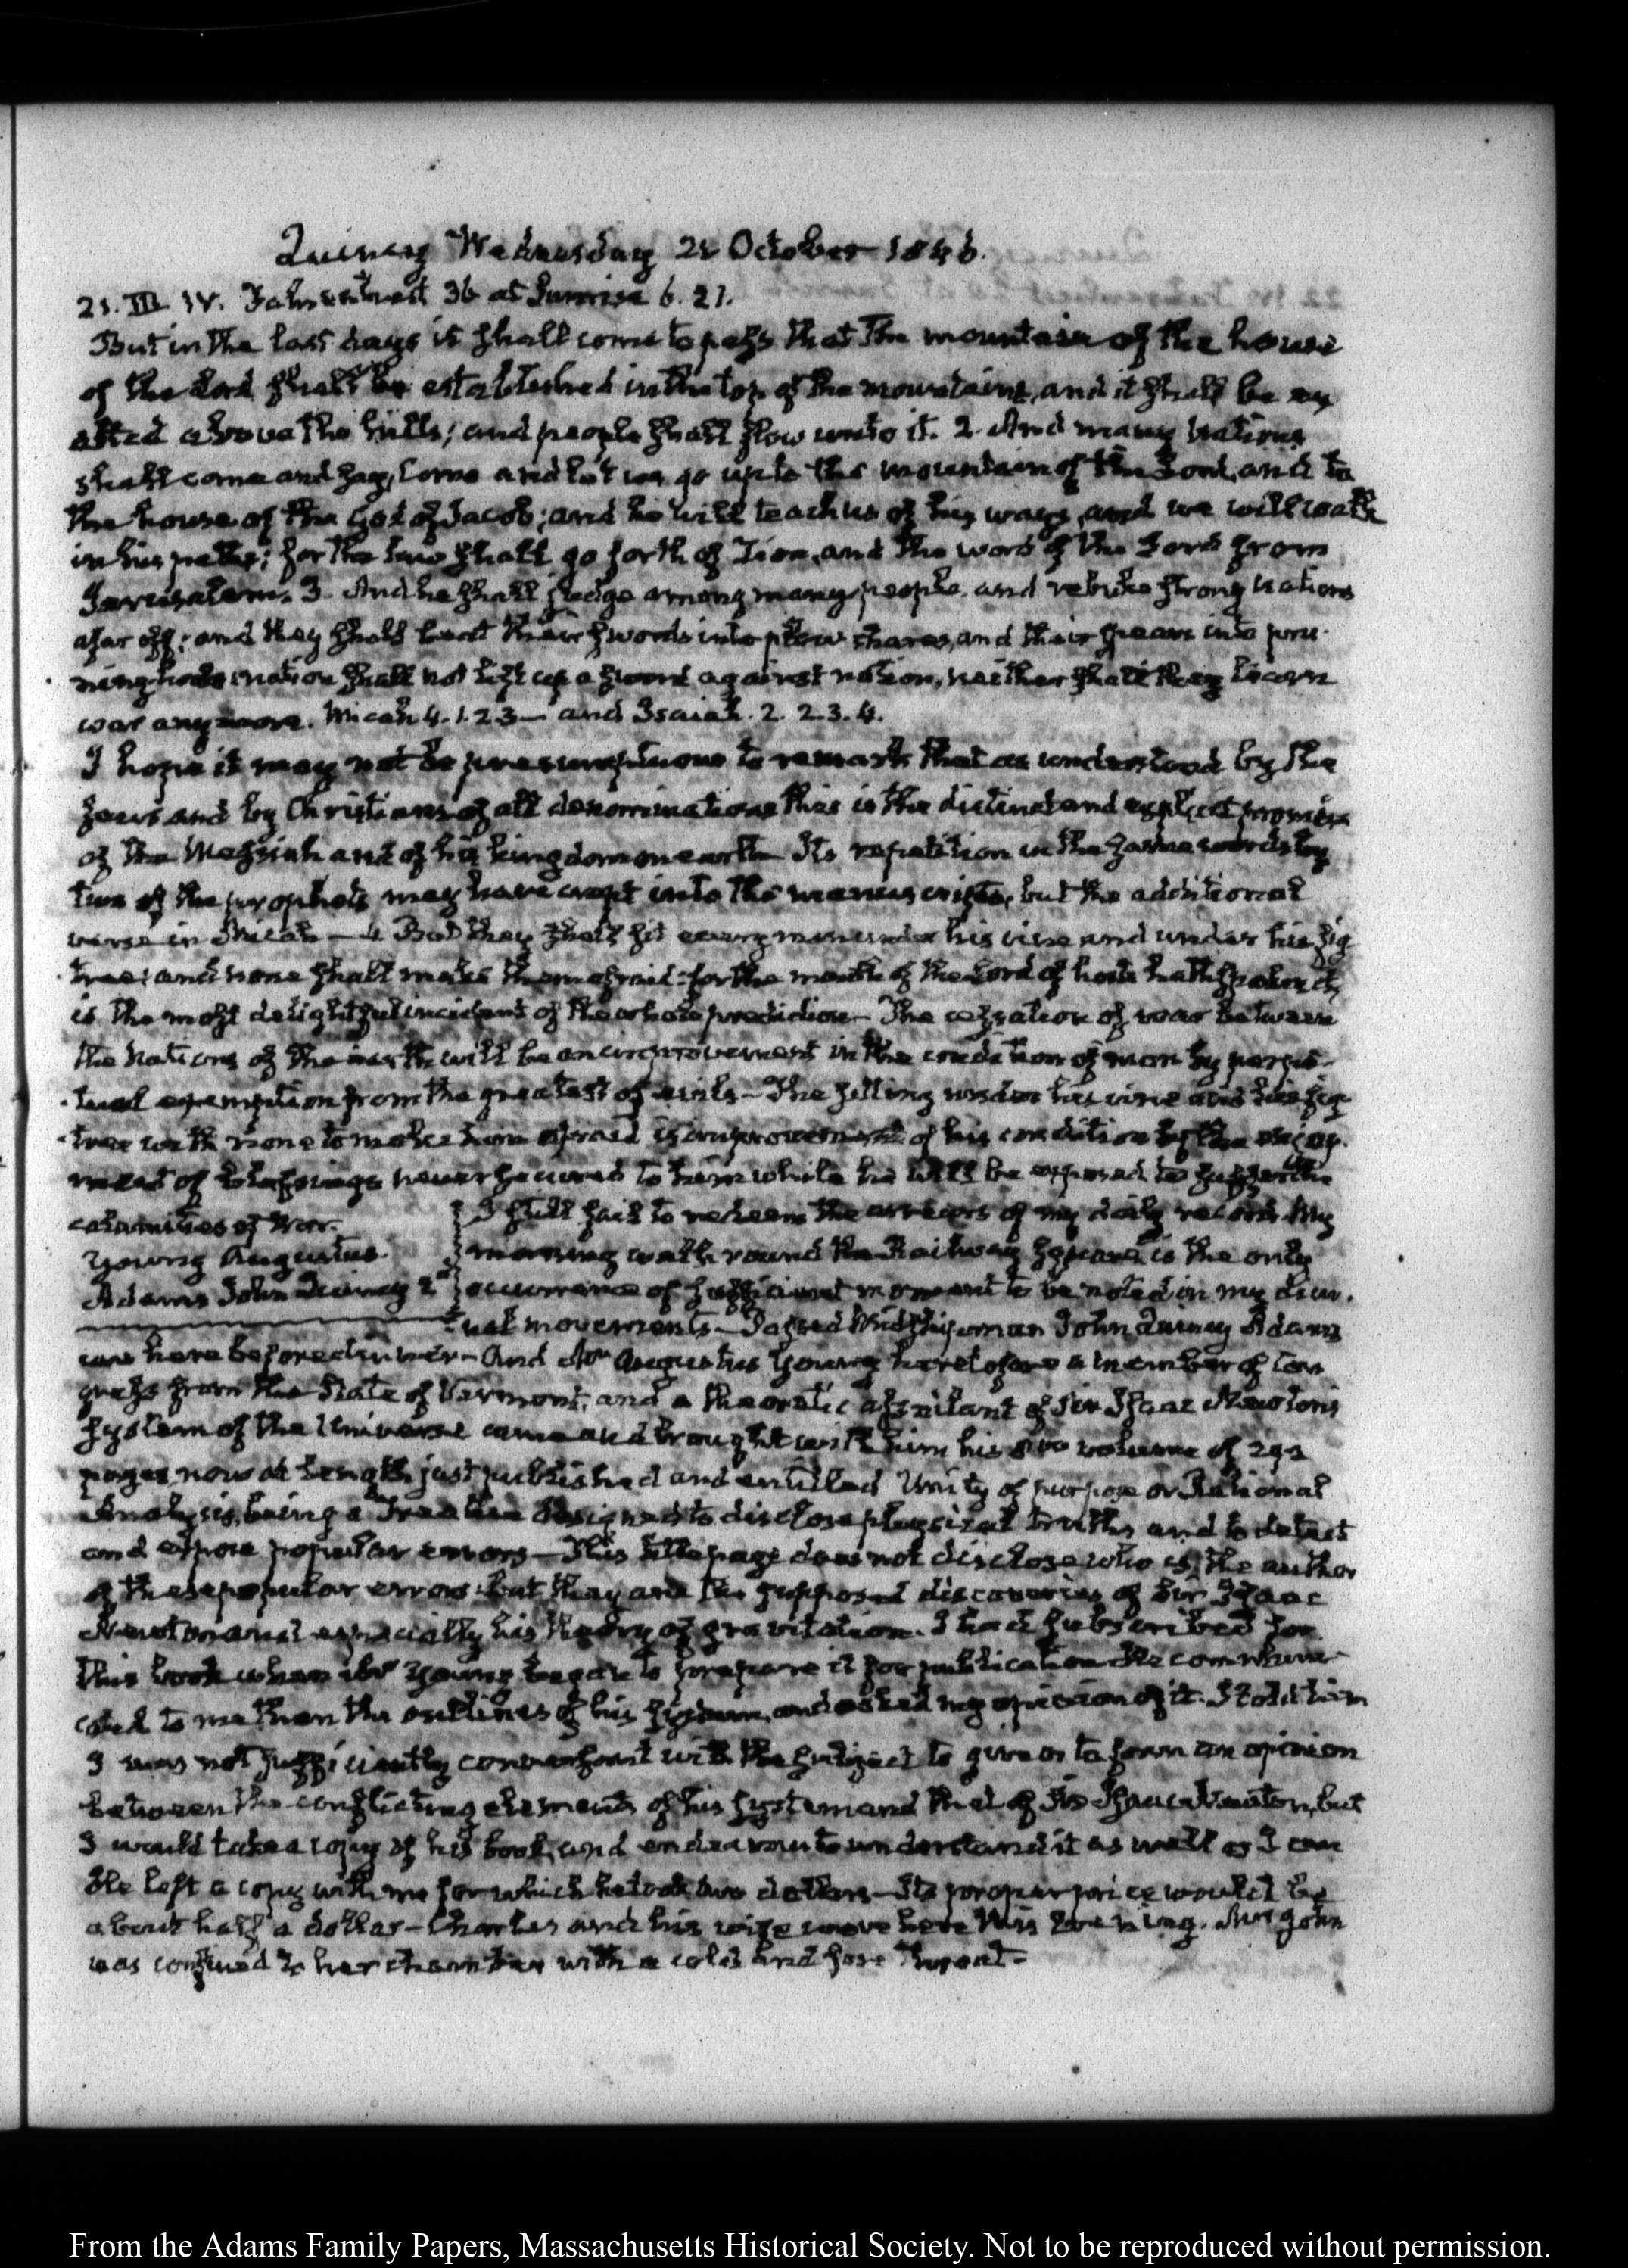 Quincy Wednesday 21 October 1846.
21. III. IV. Fahrenheit 36 at Sunrise 6.21.
But in the last days it shall come to pass that the mountain of the house
of the Lord shall be established in the top of the mountains, and it shall be ex
alted above the hills; and people shall flow unto it. 2. And many nations
shall come and say, Come and let us go up to the mountain of the Lord, and to
the house of the God of Jacob; and he will teach us of his ways, and we will walk
in his paths; for the law shall go forth of Zion, and the word of the Lord from
Jerusalem. 3. And he shall judge among many people, and rebuke strong nations
afar off; and they shall beat their swords into plow shares, and their spears into pru-
ning hooks; nation shall not lift up a sword against nation, neither shall they learn
war any more. Micah 4. 1. 2 3— and Isaiah. 2. 2. 3. 4.
I hope it may not be presumptuous to remark that as understood by the
Jews and by Christians of all denominations this is the distinct and explicit promise
of the Messiah and of his kingdom on earth— Its repetition in the same words by
two of the prophets may have crept into the manuscripts, but the additional
verse in Micah— 4 But they shall sit every man under his vine and under his fig
tree; and none shall make them afraid: for the mouth of the Lord of hosts hath spoken it,
is the most delightful incident of the whole prediction— The cessation of war between
the nations of the earth will be an improvement in the condition of man by perpe-
tual exemption from the greatest of evils— The sitting under his vine and his fig
tree with none to make him afraid is improvement of his condition by the enjoy-
ment of blessings never secured to him while he will be exposed to suffer the
calamities of War.
Young Augustus
Adams John Quincy 2d
I still fail to redeem the arrears of my daily record. My
morning walk round the Railway Square is the only
occurrence of sufficient moment to be noted in my diur-
nal movements— Passed Midshipman John Quincy Adams
was here before dinner— And Mr. Augustus Young heretofore a member of Con
gress from the State of Vermont, and a theoretic assailant of Sir Isaac Newton's
System of the Universe came and brought with him his 8vo volume of
pages now at length just published and entitled Unity of purpose or Rational
Analysis, being a Treatise designed to disclose physical truths and to detect
and expose popular errors— This title page does not disclose who is the author
of these popular errors: but they are the supposed discoveries of Sir Isaac
Newton and especially his theory of gravitation. I had subscribed for
this book when Mr Young began to prepare it for publication He communi-
cated to me then the outlines of his system, and asked my opinion of it. I told him
I was not sufficiently conversant with the subject to give or to form an opinion
between the conflicting elements of his system and that of Sir Isaac Newton, but
I would take a copy of his book, and endeavour to understand it as well as I can
He left a copy with me for which he took two dollars— Its proper price would be
about half a dollar— Charles and his wife were here this Evening. Mrs John
was confined to her chamber with a cold and sore throat—
From the Adams Family Papers, Massachusetts Historical Society. Not to be reproduced without permission.